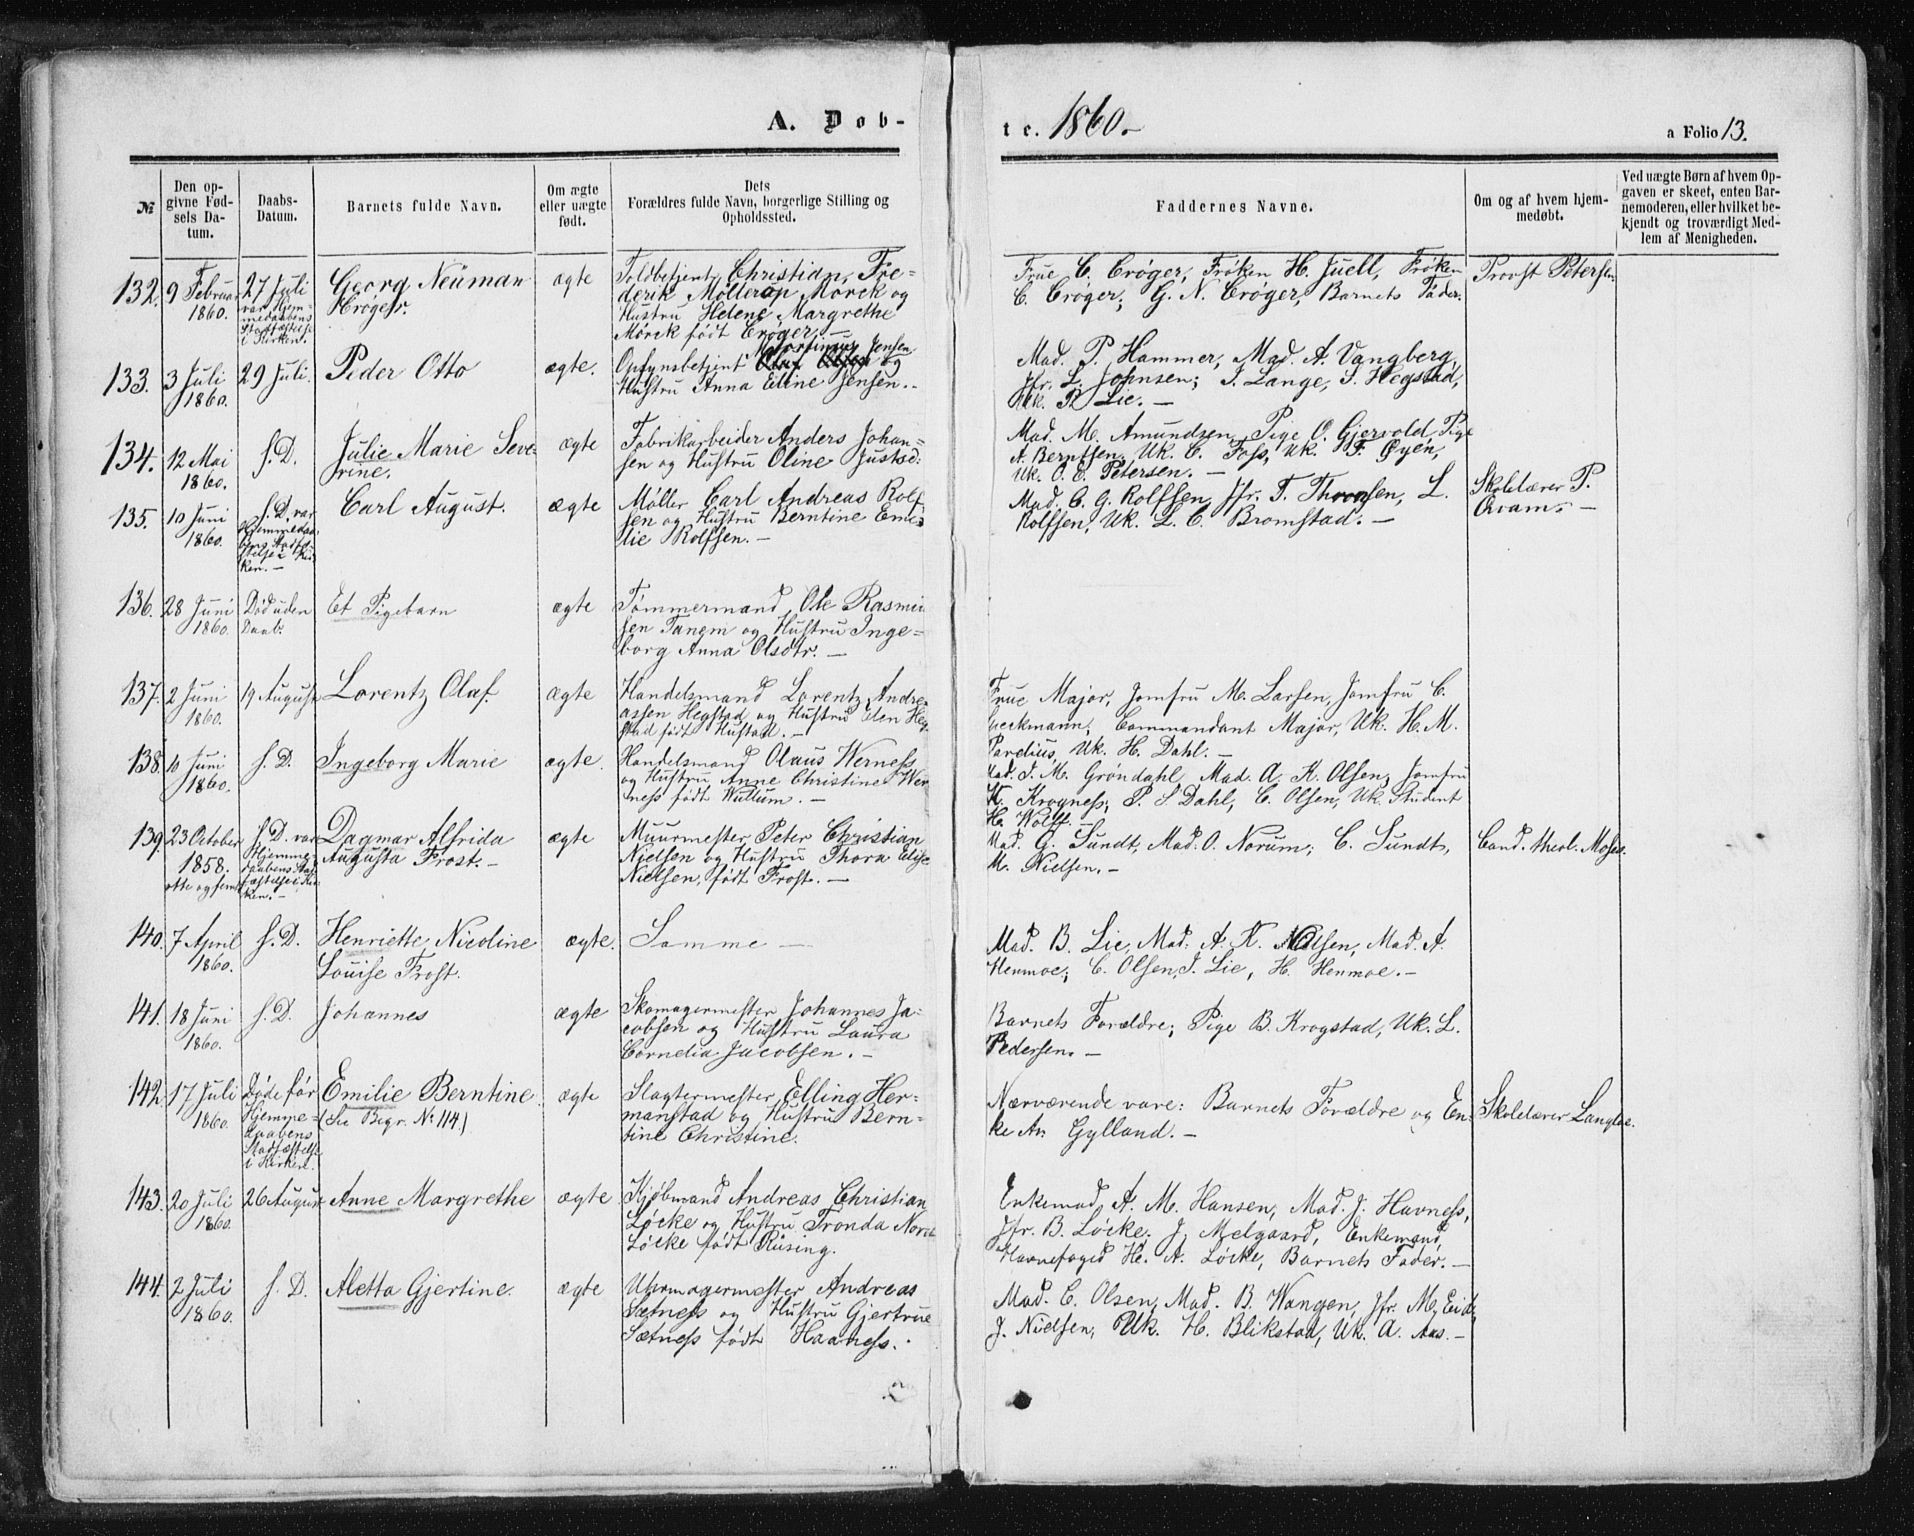 A. Døb-
te. 1860.-
a Folio 13.
№
Den op-
givne Fød-
sels Da-
tum.
Daabs-
Datum.
Barnets fulde Navn.
Om ægte
eller uægte
født.
Dets
Forældres fulde Navn, borgerlige Stilling og
Opholdssted.
Faddernes Navne.
Om og af hvem hjem-
medøbt.
Ved uægte Børn af hvem Op-
gaven er skeet, enten Bar-
nemoderen, eller hvilket be-
kjendt og troværdigt Med-
lem af Menigheden.
132.
9 Februar
1860.
27 Juli
var Hjem-
medaabens
Stadfæstelse
i Kirken.
Georg Neuman
Crøger.
ægte
Toldbetjent Christian Fre-
derik Møllerup Mørck og
Hustru Helene Margrethe
Mørck født Crøger. -
Frue C. Crøger, Frøken H. Juell, Frøken
C. Crøger; G. N. Crøger, Barnets Fader.
Provst Petersen.
133.
3 Juli
1860.
29 Juli.
Peder Otto
ægte.
Jensen
Opsynsbetjent og
Hustru Anna Eline Jensen. -
Mad. P. Hammer, Mad. A. Vangberg,
Jfr. L. Johnsen; J. Lange, S. Hegstad,
Uk. P. Lie. -
134.
12 Mai
1860.
s. D.
Julie Marie Seve-
rine.
ægte
Fabrikarbeider Anders Johan-
sen og Hustru Oline Justsd:
Mad. M. Amundsen, Pige O. Gjervold, Pige
A. Berntsen, Uk. C. Foss, Uk. F. Øyen,
Uk. O. E. Petersen. -
135.
10 Juni
1860.
s. D. var
Hjemmedaa-
bens Stadfæ-
stelse i Kir-
ken. -
Carl August.
ægte
Møller Carl Andreas Rolf
sen og Hustru Berntine Emi-
lie Rolfsen. -
Mad. C. G. Rolfsen, Jfr. T. Thoresen, L.
Rolfsen, Uk. L. C. Bromstad. -
Skolelærer P.
Qvam. -
136.
28 Juni
1860.
Død uden
Daab.
Et Pigebarn
ægte
Tømmermand Ole Rasmus
sen Tanem og Hustru Inge-
borg Anna Olsdtr. -
137.
2 Juni
1860.
19 August
Lorentz Olaf.
ægte
Handelsmand Lorentz Andre-
assen Hegstad og Hustru Elen Heg
stad født Hustad. -
Frue Major, Jomfru M. Larsen, Jomfru C.
Beckmann; Commandant Major, Uk. H. M.
Parelius, Uk. H. Dahl. -
138.
10 Juni
1860.
s. D.
Ingeborg Marie
ægte.
Handelsmand Olaus Werness
og Hustru Anne Christine Wer
ness født Wullum. -
Mad. J. M. Grøndahl, Mad. A. K. Olsen, Jomfru
K. Krogness; P. S Dahl, C. Olsen, Uk. Student
H. Wolff. -
139.
23 October
1858.
otte og femti
s. D. var
Hjemme-
daabens Stad-
fæstelse i Kir-
ken. -
Dagmar Alfrida
Augusta Frost. -
ægte
Muurmester Peter Christian
Nielsen og Hustru Thora Elise
Nielsen, født Frost. -
Mad. G. Sundt, Mad. O. Norum; C. Sundt,
M. Nielsen. -
Cand. theol. Moses.
140.
7 April
1860.
s. D.
Henriette Nicoline
Louise Frost.
ægte.
Samme -
Mad. B. Lie, Mad. A. N. Nielsen, Mad. A.
Henmoe; C. Olsen, J. Lie, H. Henmoe. -
141.
18 Juni
1860.
s. D.
Johannes
ægte
Skomagermester Johannes Ja-
cobsen og Hustru Laura
Cornelia Jacobsen. -
Barnets Forældre; Pige B. Krogstad, Uk. L.
Pedersen. -
142
17 Juli
1860.
Døde før
Hjemme-
daabens
Stadfæstelse
i Kirken.
Emilie Berntine
(See Begr. No 114)
ægte
Slagtermester Elling Her-
manstad og Hustru Bern-
tine Christine.
Nærværende vare: Barnets Forældre og En-
ke An Gylland. -
Skolelærer Langloe.
143.
20 Juli
1860.
26 August
Anne Margrethe
ægte
Kjøbmand Andreas Christian
Løcke og Hustru Tronda Nora
Løcke født Rusing.
Enkemad. A. M. Hansen, Mad. J. Havness,
Jfr. B. Løcke; J. Melgaard, Enkemand,
Havnefoged H. A. Løcke, Barnets Fader. -
144.
2 Juli
1860.
s. D.
Aletta Gjertine.
ægte
Uhrmagermester Andreas
Sætness og Hustru Gjertrue
Sætness født Haaness.
Mad. C. Olsen, Mad. B. Wangen, Jfr. M. Eid;
J. Nielsen, Uk. H. Blikstad, Uk. A. Aas. -